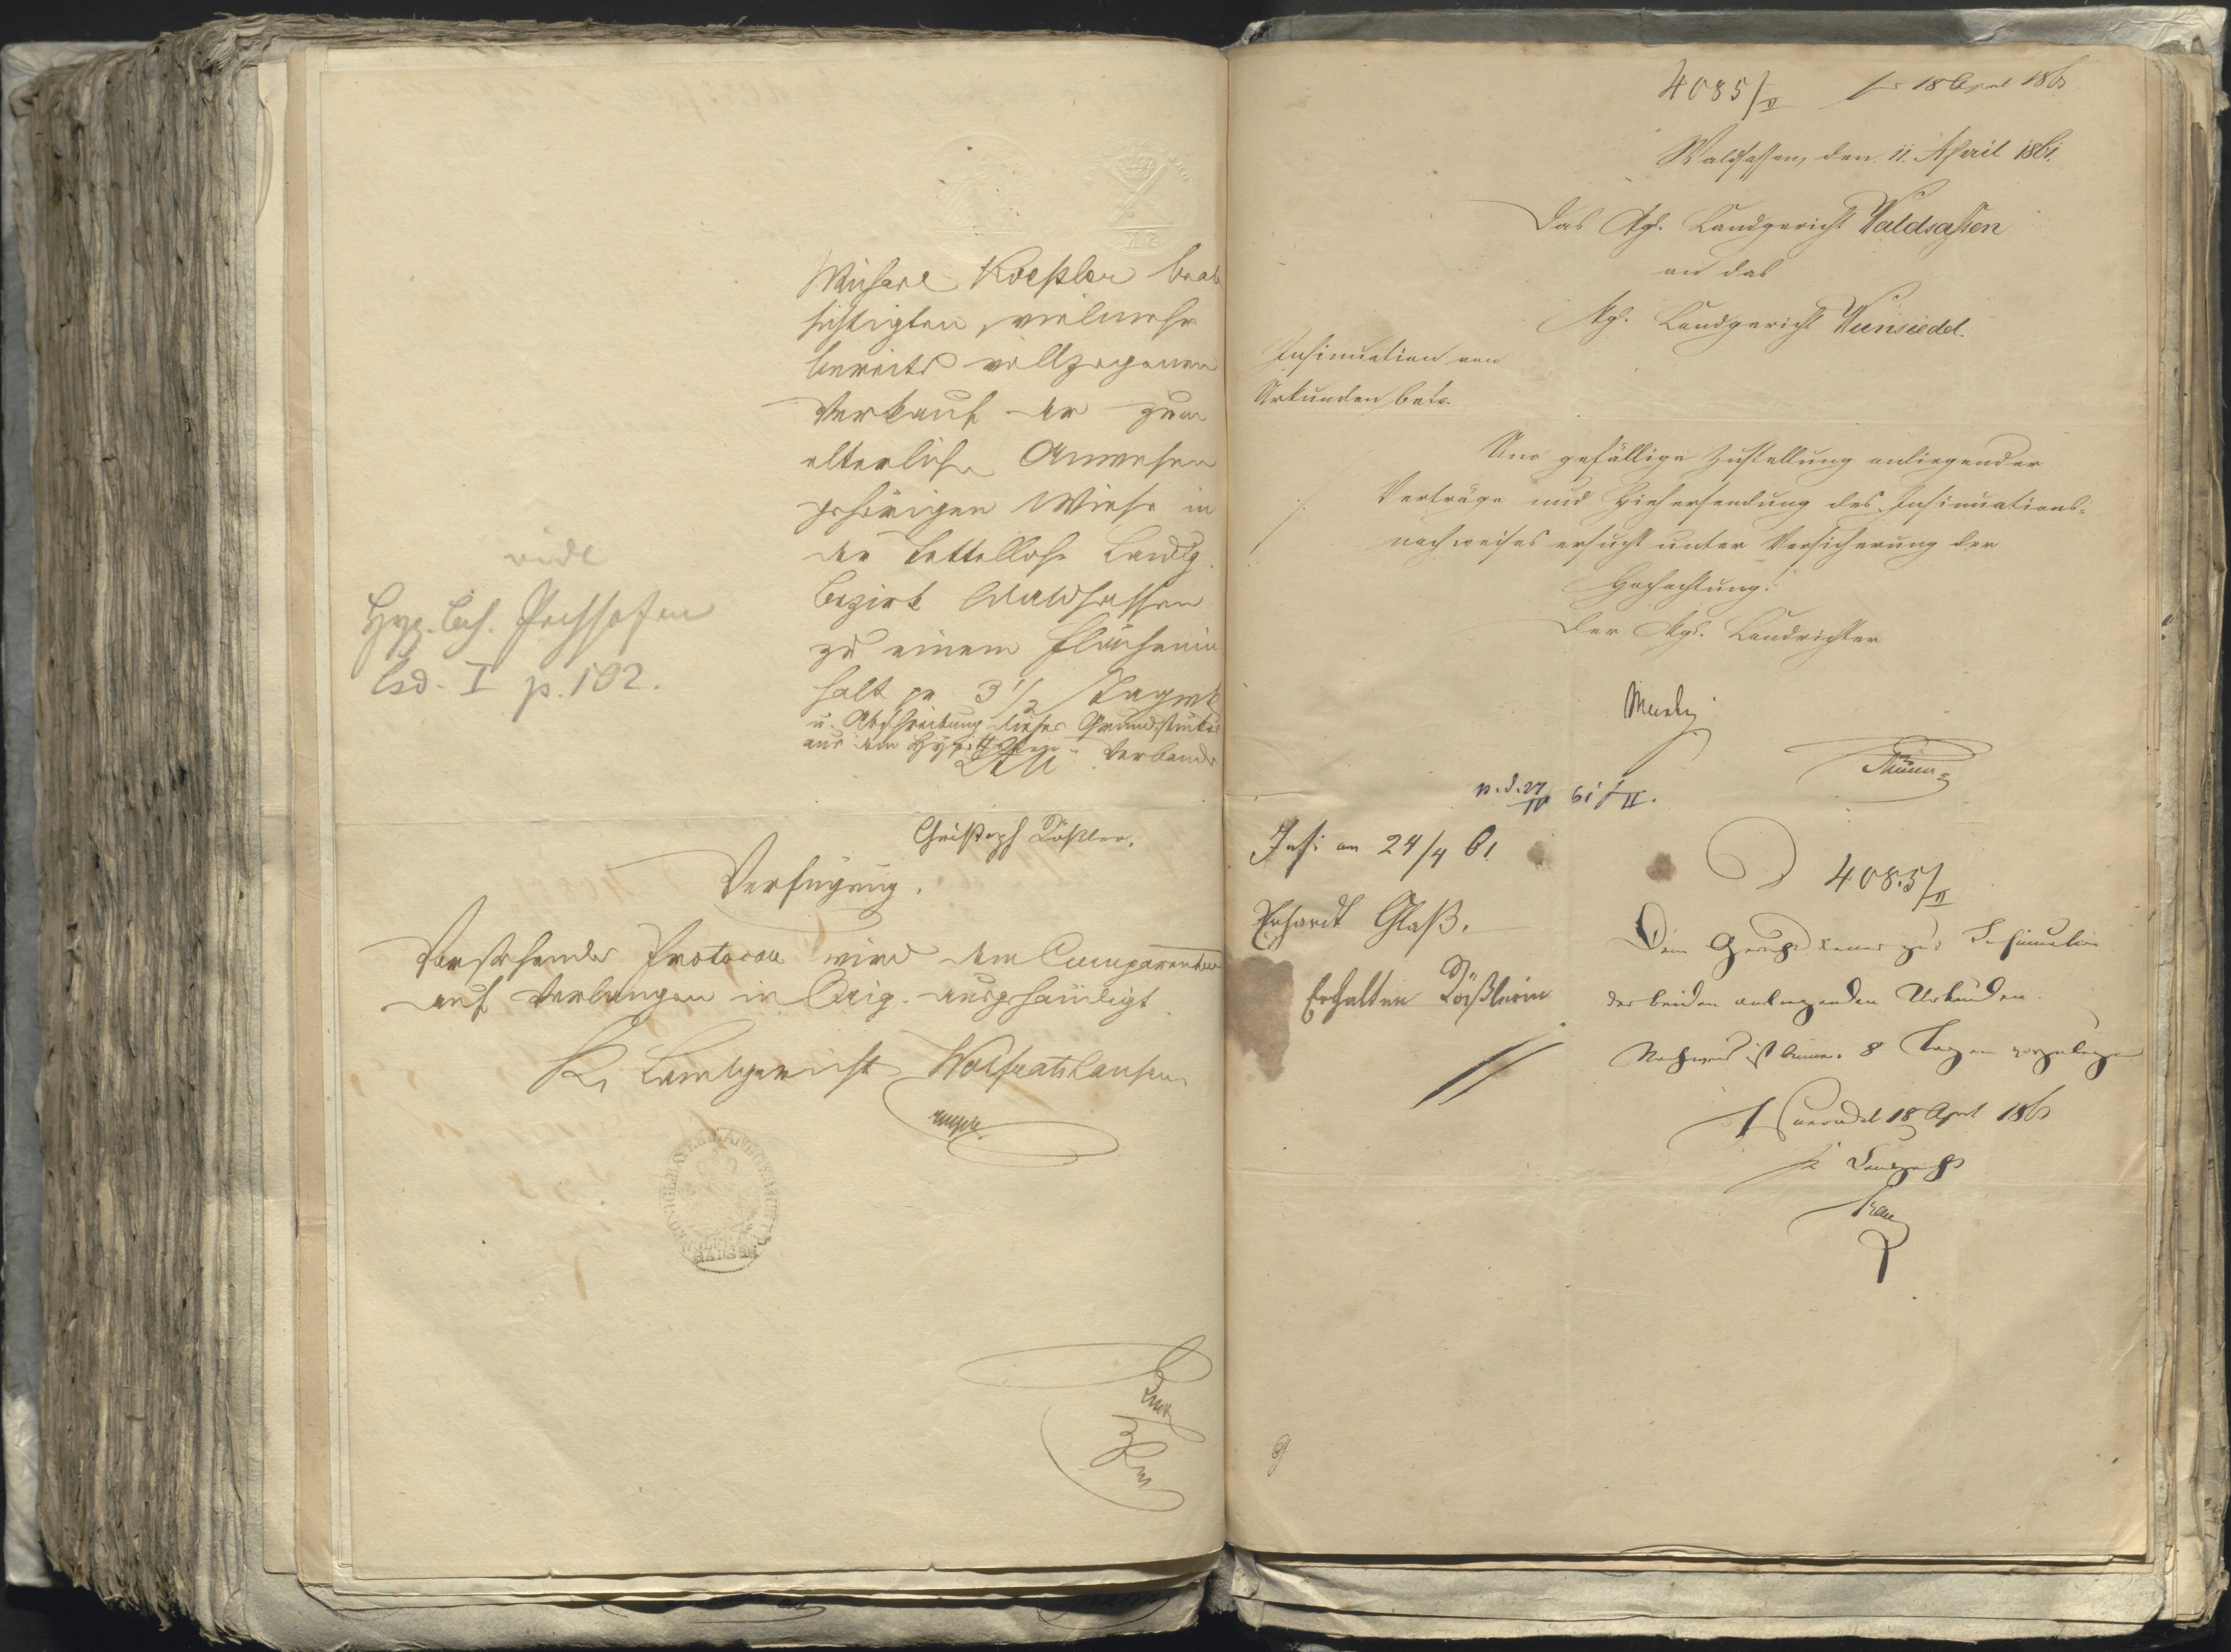 Michael Roeßler beab
sichtigten, vielmehr
bereits vollzogenen
Verkauf der zum
elterlichen Anwesen
gehörigen Wiese in
der Landg.
Bezirk Waldsassen
zu einem Flächenin
halt pr 3 1/2 Tagwk
u. Abschreibung dieses Grundstückes
aus dem Hypotheken- Verbande
vide
Hyp. Bch.
Bd. I p. 102.
Christoph Rößler.
Verfügung.
Vorstehendes Protocoll wird dem Comparenten
auf Verlangen in Orig. ausgehändigt
K. Landgericht Wolfratshausen
4085/II 18 April 186
Waldsassen, den 11. April 1861.
Das Kgl. Landgericht Waldsassen
an das
Kgl. Landgericht Wunsiedel.
Insinuation von
Urkunden betr.
Um gefällige Zustellung anliegender
Verträge und Hiehersendung des Insinuations-
nachweises ersucht unter Versicherung der
Hochachtung!
Der Kgl. Landrichter
p. d. 27/IV 61 II.
Insi am 24/4 61
Erhardt Glaß.
Erhalten Rößlerin
4085/II
Dem Gerichtsdiener zur Insinuation
der beiden anliegenden Urkunden.
Nachweis ist binnen 8 Tagen vorzulegen
Wunsiedel 18 April 186
K Landgericht